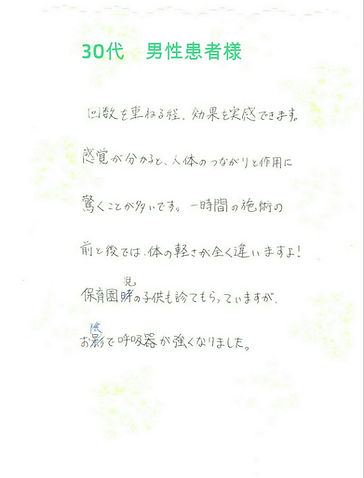 30代　男性患者様
回数を重ねる程、効果を実感できます。
感覚が分かると、人体のつながりと作用に
驚くことが多いです。一時間の施術の
前と後では、体の軽さが全く違いますよ！
保育園児の子供も診てもらっていますが、
お陰で呼吸器が強くなりました。